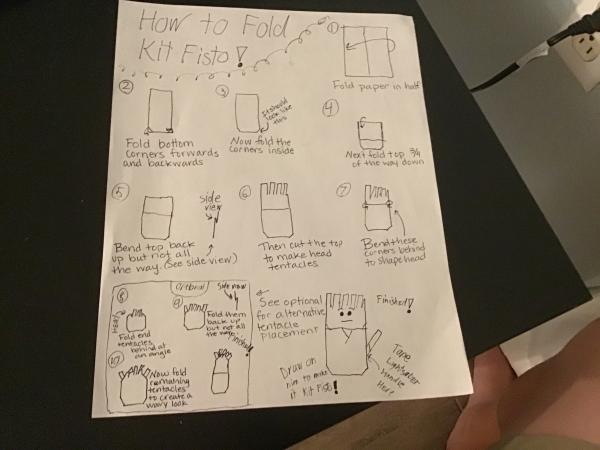 How to Fold
Kit Fisto!
①
Fold paper in half
②
Fold bottom
corners forwards
and backwards
3
It should
look like
this
Now fold the
corners inside
④
Next fold top 3/4
of the way down
⑤
side
view
Bend top back
up but not all
the way. (See side view)
⑥
Then cut the top
to make head
tentacles
⑦
Bend these
corners behind
to shape head
(optional)
⑧
Here
Fold end
tentacles
behind at
an angle
⑨
side view
Fold them
back up
but not all
the way
Finished!
⑩
Now fold
remaining
tentacles
to create a
wavy look
← See optional
for alternative
tentacle
placement
Finished!
Draw on
him to make
it Kit Fisto!
Tape
Lightsaber
handle
Here